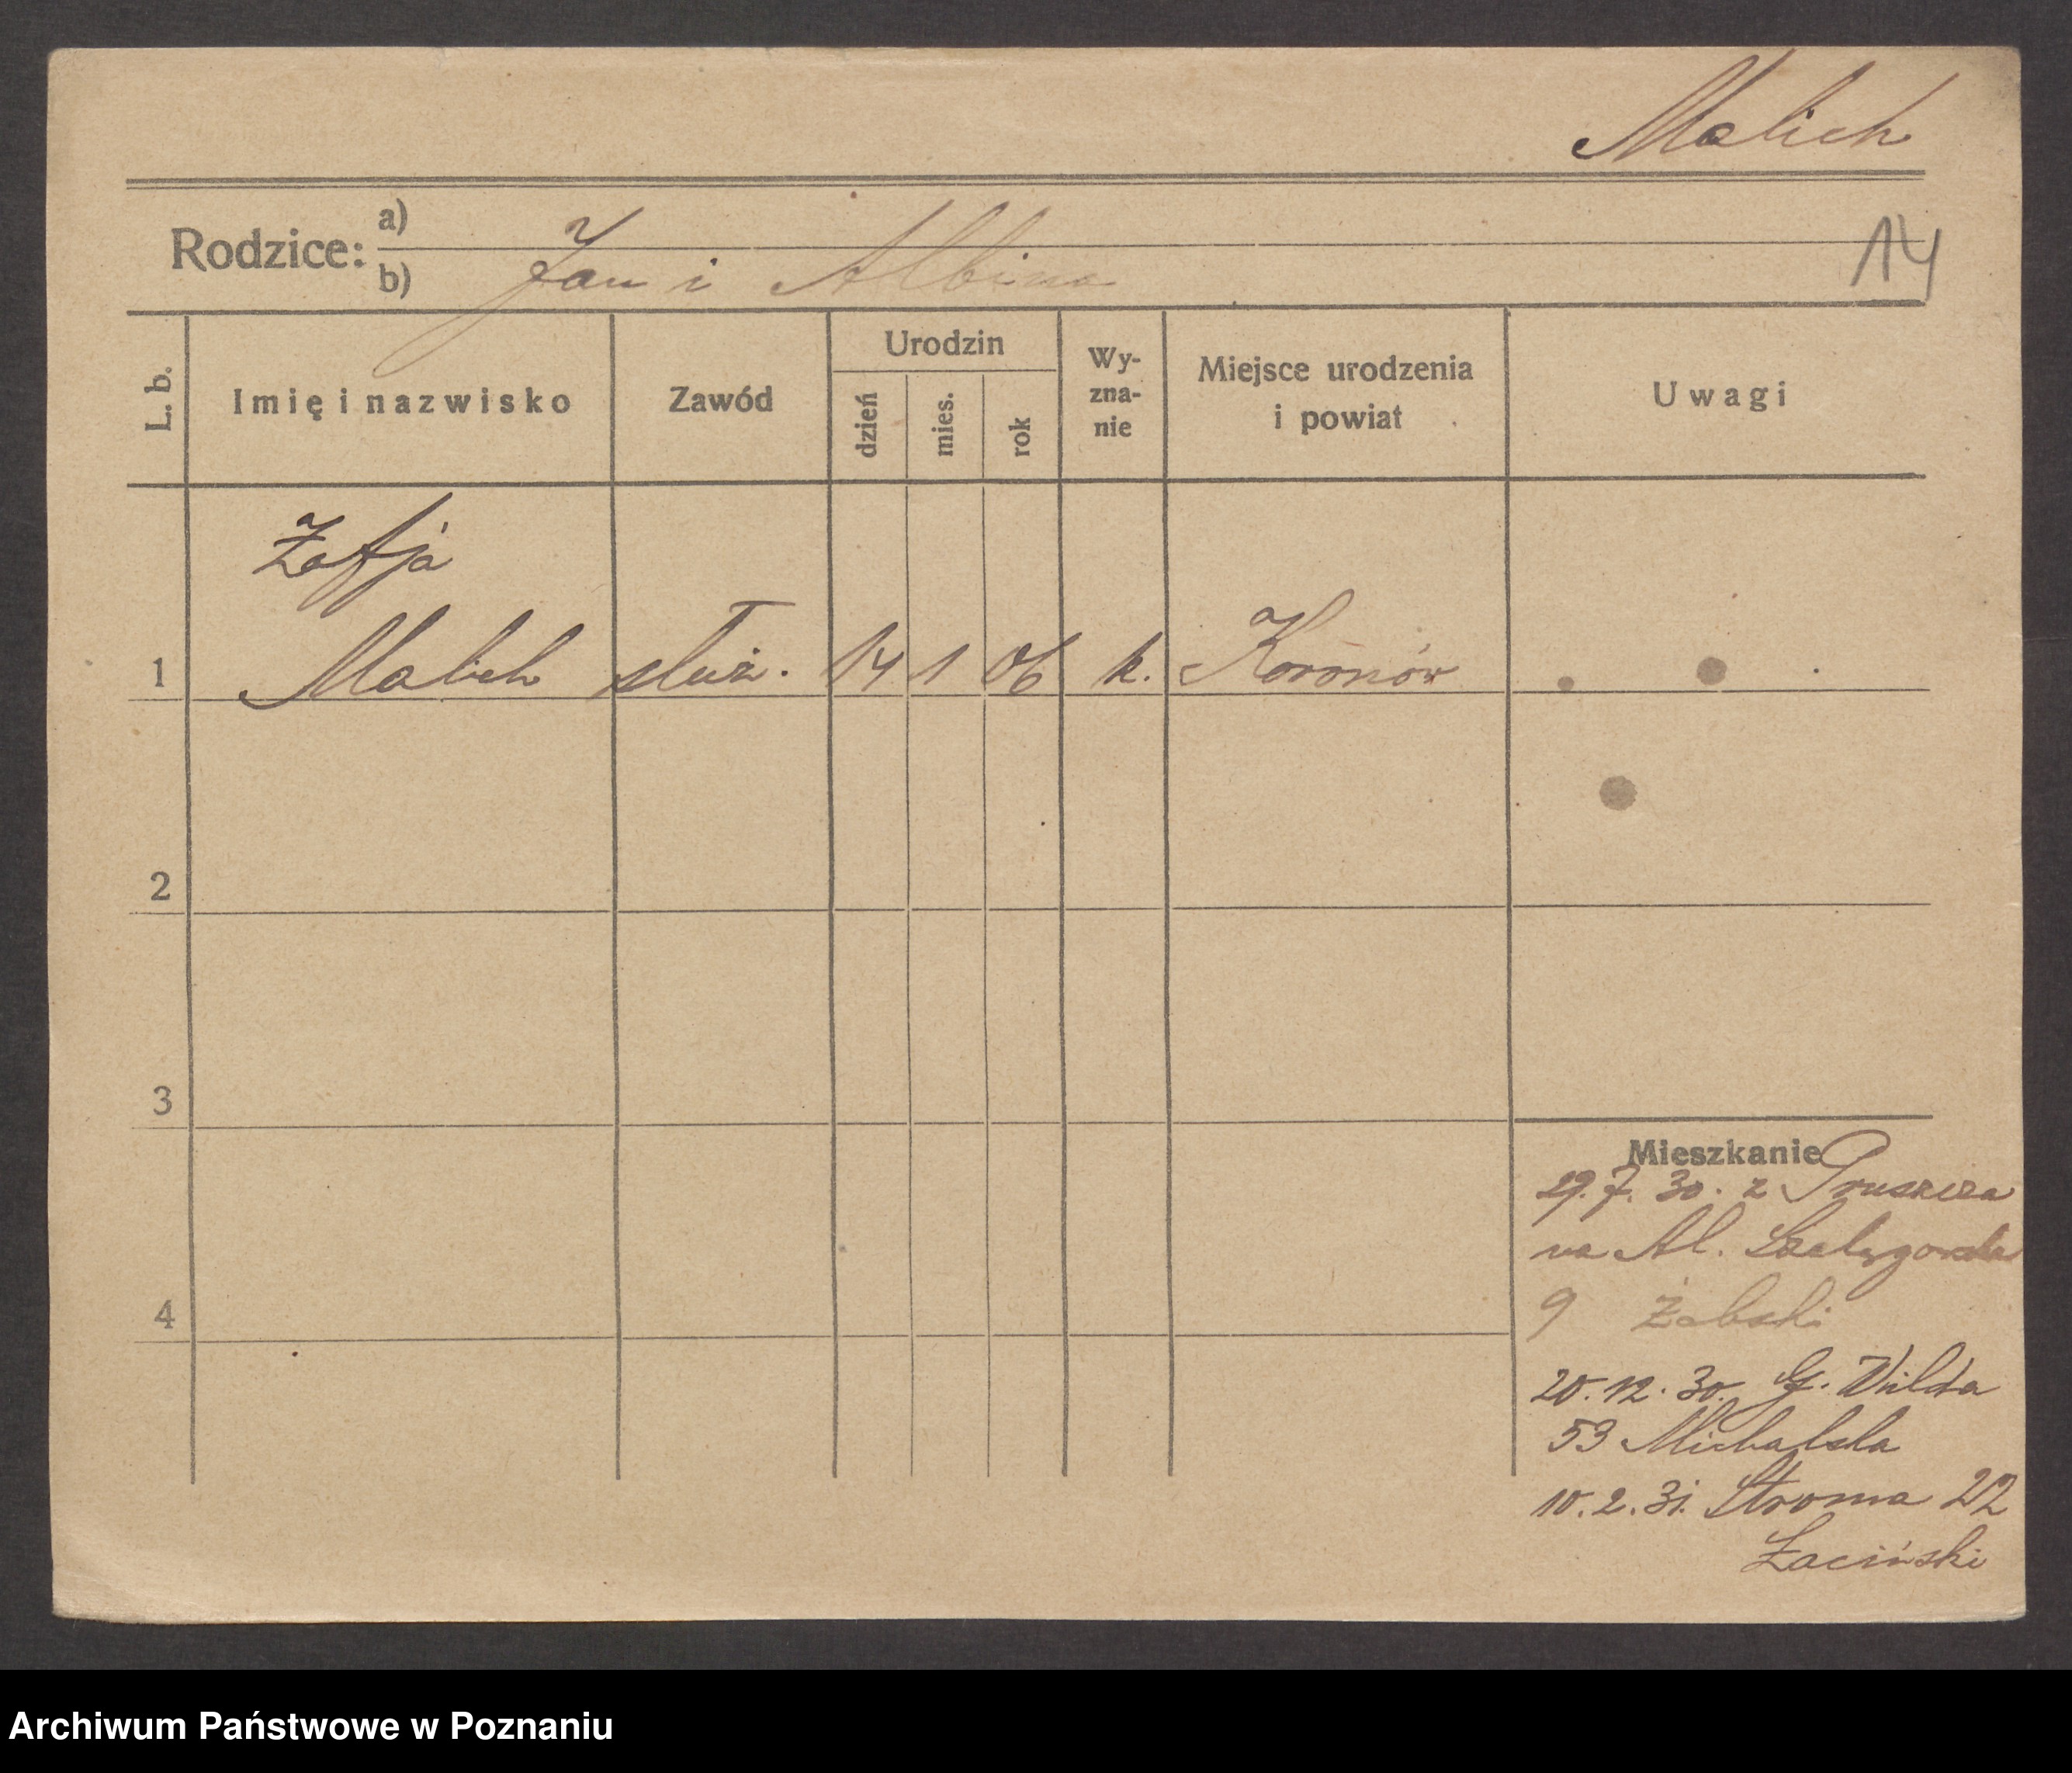 Malich
Rodzice:
a)
b) Jan i Albina
14
L. b.
Imię i nazwisko
Zawód
Urodzin
dzień
mies.
rok
Wy-
zna-
nie
Miejsce urodzenia
i powiat
Uwagi
Zofja
1 Malich służ. 14 1 06 k. Koronów
2
3
4
Mieszkanie
29.7.30. z Pruszcza
na Al. Szelągowska
9 Żabski
20.12.30. G. Wilda
53 Michalska
10.2.31. Stroma 22
Łaciński
Archiwum Państwowe w Poznaniu